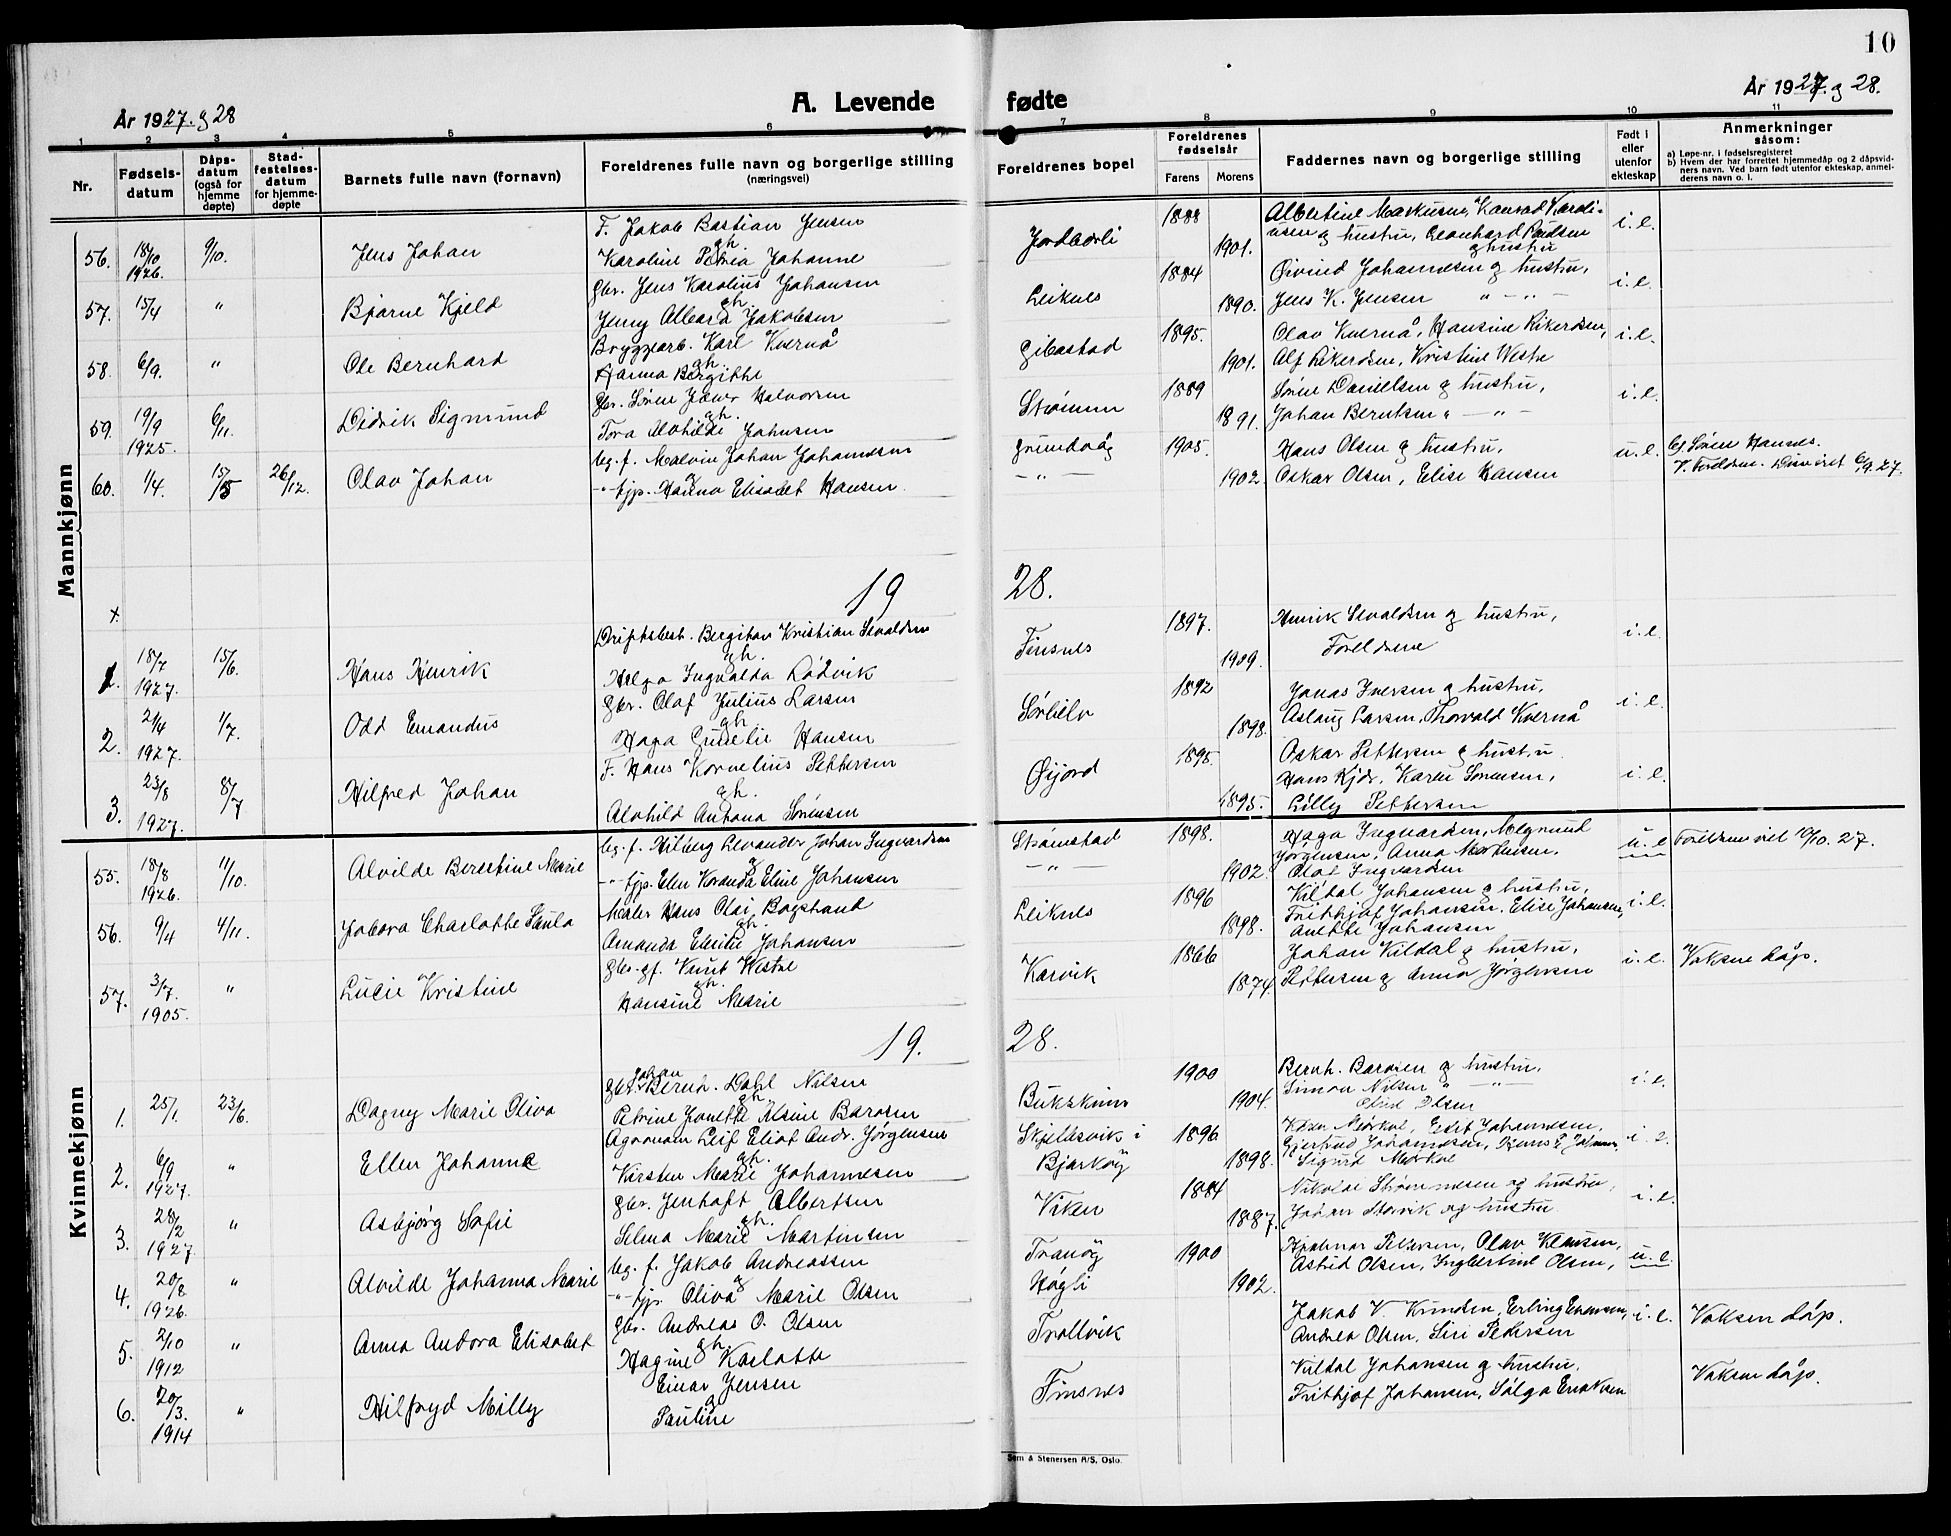 10
År 1927. g 28
A. Levende
fødte
År 1927. g 28.
1 2 3 4 5 6 7 8 9 10 11
Nr.
Fødsels-
datum
Dåps-
datum
(også for
hjemme
døpte)
Stad-
festelses-
datum
for hjemme-
døpte
Barnets fulle navn (fornavn)
Foreldrenes fulle navn og borgerlige stilling
(næringsvei)
Foreldrenes bopel
Foreldrenes
fødselsår
Farens Morens
Faddernes navn og borgerlige stilling
Født i
eller
utenfor
ekteskap
Anmerkninger
såsom:
a) Løpe-nr. i fødselsregisteret
b) Hvem der har forrettet hjemmedåp og 2 dåpsvid-
ners navn. Ved barn født utenfor ekteskap, anmel-
derens navn o. l.
Mannkjønn
56. 18/10 1926. 9/10. Jens Johan
F. Jakob Bastian Jensen
gh.
Karoline Petrea Johanne
Jordbærli 1888 1901.
Albertine Markusen, Konrad Karoli-
usen g hustru, Leonhard Paulsen
g hustru
i. e.
57. 15/4 " Bjarne Kjeld
Gbr. Jens Karolius Johansen
gh.
Jenny Albara Jakobsen
Leiknes 1884 1890.
Øivind Johannesen g hustru,
Jens K. Jensen " - " -
i. e.
58. 6/9. " Ole Bernhard
Bryggearb. Karl Kvernå
gh.
Hanna Bergitte
Gibostad 1895. 1901.
Olav Kvernå, Hansine Rikardsen,
Alf Rikardsen, Kristine Westre
i. e.
59. 19/9 1925. 6/11. Didrik Sigmund
Gbr. Sören Jäner Halvorsen
gh.
Tora Alvhilde Johnsen
Strømmen 1889 1891.
Sörine Danielsen g hustru,
Johan Berntsen " - " -
i. e.
60. 1/4. 15/5 26/12. Olav Johan
Ug. f. Malvin Johan Johannesen
g
- " - tjp. Hanna Elisabet Hansen
Grundvåg
- " -
1905. 1902
Hans Olsen g hustru,
Oskar Olsen, Elise Hansen
u. e.
V. Foreldrene. 6/9. 27.
19 28.
x
1. 18/7 1927. 15/6. Hans Henrik
Driftsbest. Bergiton Kristian Sivaldsen
gh.
Helga Ingvalda Lødvik
Finsnes 1897. 1909.
Henrik Sivaldsen g hustru,
Foreldrene
i. e.
2. 2/4 1927. 1/7. Odd Emandus
Gbr. Olaf Julius Larsen
gh.
Haga Gurelie Hansen
Sørlielv 1892 1898.
Jonas Iversen g hustru,
Aslaug Larsen, Thorvald Kvernå
i. e.
3. 23/8 1927. 8/7 Hilfred Johan
F. Hans Kornelius Pettersen
gh.
Alvhild Antona Sørensen
Øijord 1895. 1895.
Oskar Pettersen g hustru
Hans Hjdr. Karen Sørensen,
Lilly Pettersen
i. e.
Kvinnekjønn
55. 18/8 1926. 11/10. Alvilde Bersetine Marie
Ug. f. Hilberg Levander Johan Ingvardsen
g
- " - tjp. Elen Koranda Eline Johansen
Strømstad
- " -
1898. 1902.
Haga Ingvardsen, Magnund
Jørgensen, Anna Mortensen,
Olaf Ingvardsen
u. e
Foreldrene viet 10/10. 27.
56. 9/4 4/11. Jobora Charlotte Paula
Maler Hans Olai Bogstrand
gh.
Amanda Emilie Johansen
Leiknes 1896 1898.
Vildal Johansen g hustru,
Frithjof Johansen, Elise Johansen,
Anette Johansen
i. e.
57. 3/7. 1905. " Lucie Kristine
Gbr. gf. Knut Westre
gh.
Hansine Marie
Karvik 1866 1874.
Johan Vildal g hustru,
Pettersen g Anna Jörgensen
i. e.
Voksne dåp.
19. 28.
1. 25/1. 23/6. Dagny Marie Oliva
Johan
Gbr. Bernh. Dahl Nilsen
gh.
Petrine Janette Alsine Bårdsen
Bukskinn 1900 1904.
Bernh. Bårdsen g hustru,
Simon Nilsen " "
Olsen
i. e.
2. 6/9 1927. " Ellen Johanne
Agronom Leif Eliot Andr. Jörgensen
gh.
Kirsten Marie Johannesen
Skjellesvik i
Bjarköy
1896 1898.
Mørkve, Edit Johannesen,
Gjertrud Johannesen,
Sigurd Mørkve
i. e.
3. 28/2 1927. " Asbjørg Sofie
Gbr. Jenhaft Albertsen
gh.
Selma Marie Martinsen
Viken 1884 1887.
Nikolai Strømmesen og hustru,
Johan Storvik og hustru
i. e.
4. 20/8 1926. " Alvilde Johanna Marie
Ug. f. Jakob Andreassen
g
- " - tjp. Oliva Marie Olsen
Tranöy
Högli
1900 1902.
Hjalmar Pedersen, Olav Klausen,
Astrid Olsen, Ingbertine Olsen,
u. e.
5. 2/10 1912 " Anna Andora Elisabet
Gbr. Andreas O. Olsen
gh.
Hagine Karlotte
Trollvik
Jakob V. Knudsen, Erling Evensen,
Andrea Olsen, Siri Pedersen
i. e.
Voksen dåp.
6. 20/3. 1914 " Hilfryd Milly
Einar Jensen
g
Pauline
Finsnes
Vildal Johansen g hustru,
Frithjof Johansen, Solga Enoksen
Voksen dåp.
Sem & Stenersen A/S, Oslo.